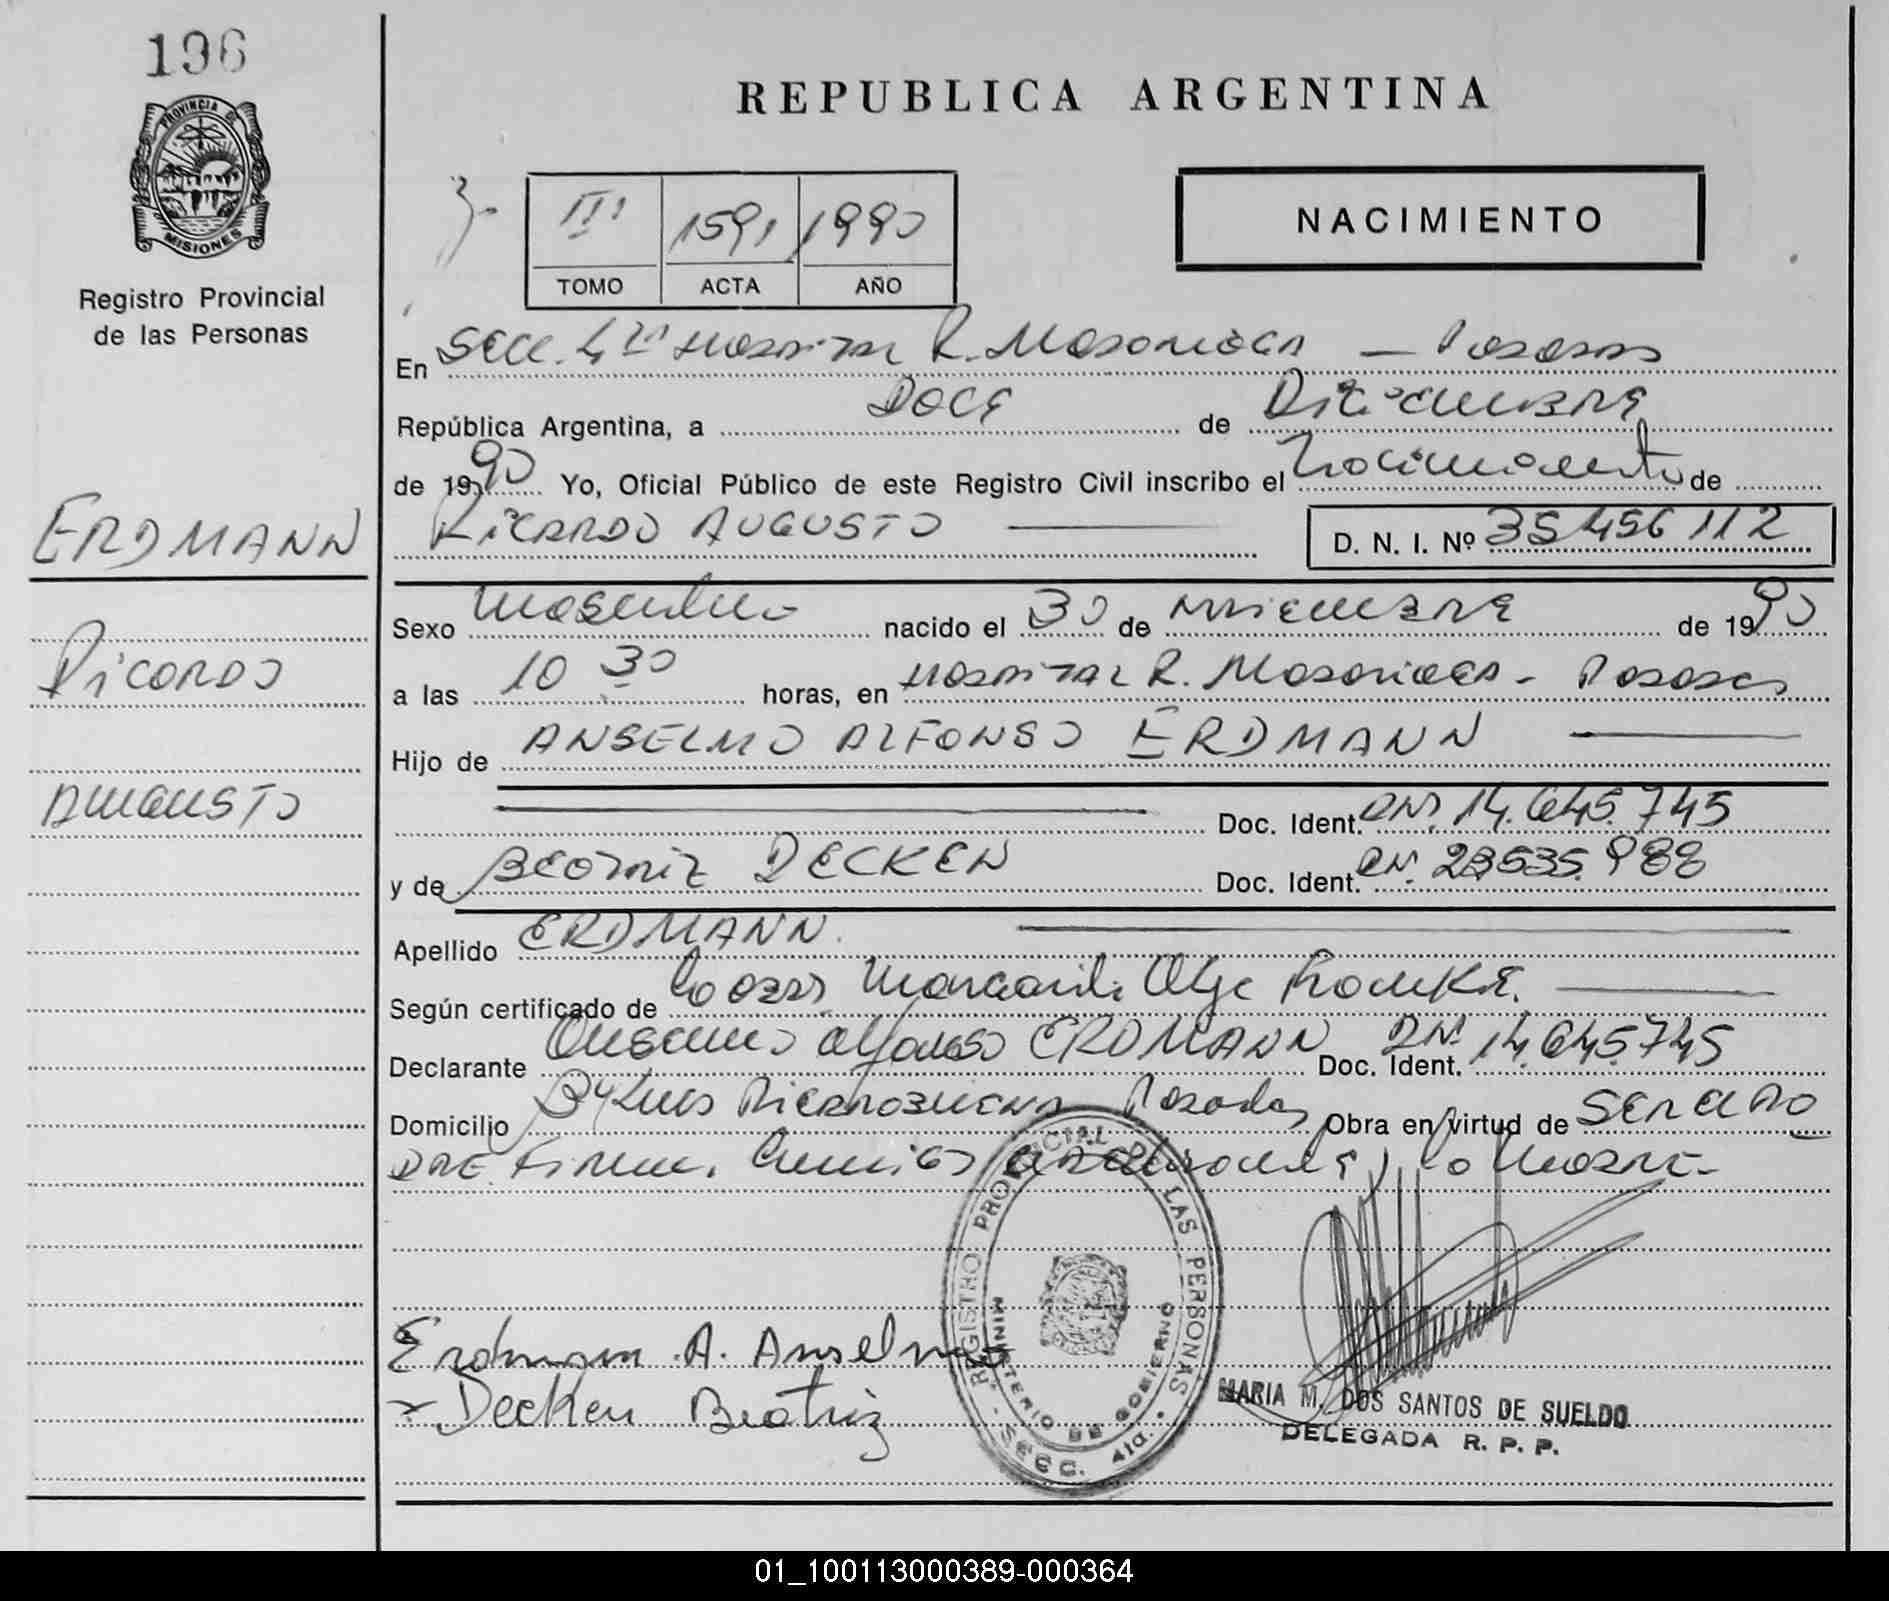 196
PROVINCIA DE
MISIONES
Registro Provincial
de las Personas
ERDMANN
Ricardo
Augusto
REPUBLICA ARGENTINA
III 1591 1990
TOMO ACTA AÑO
NACIMIENTO
En Secc. 4ta Hospital R. Madariaga — Posadas
República Argentina, a DOCE de Diciembre
de 1990 Yo, Oficial Público de este Registro Civil inscribo el Nacimiento de
RICARDO AUGUSTO D. N. I. Nº 35456112
Sexo Masculino nacido el 30 de Noviembre de 1990
a las 10 30 horas, en Hospital R. Madariaga - Posadas
Hijo de ANSELMO ALFONSO ERDMANN
Doc. Ident. DNI. 14.645.745
y de Beatriz DECKEN Doc. Ident. DNI. 23535.988
Apellido ERDMANN.
Según certificado de Margarita Olga
Declarante Anselmo Alfonso ERDMANN Doc. Ident. DNI. 14.645.745
Domicilio Posadas Obra en virtud de ser el pa
dre. Firma, la madre-
Erdmann A. Anselmo
Decken Beatriz
REGISTRO PROVINCIAL DE LAS PERSONAS
MINISTERIO DE GOBIERNO
- SECC. 4ta. -
MARIA M. DOS SANTOS DE SUELDO
DELEGADA R. P. P.
01_100113000389-000364